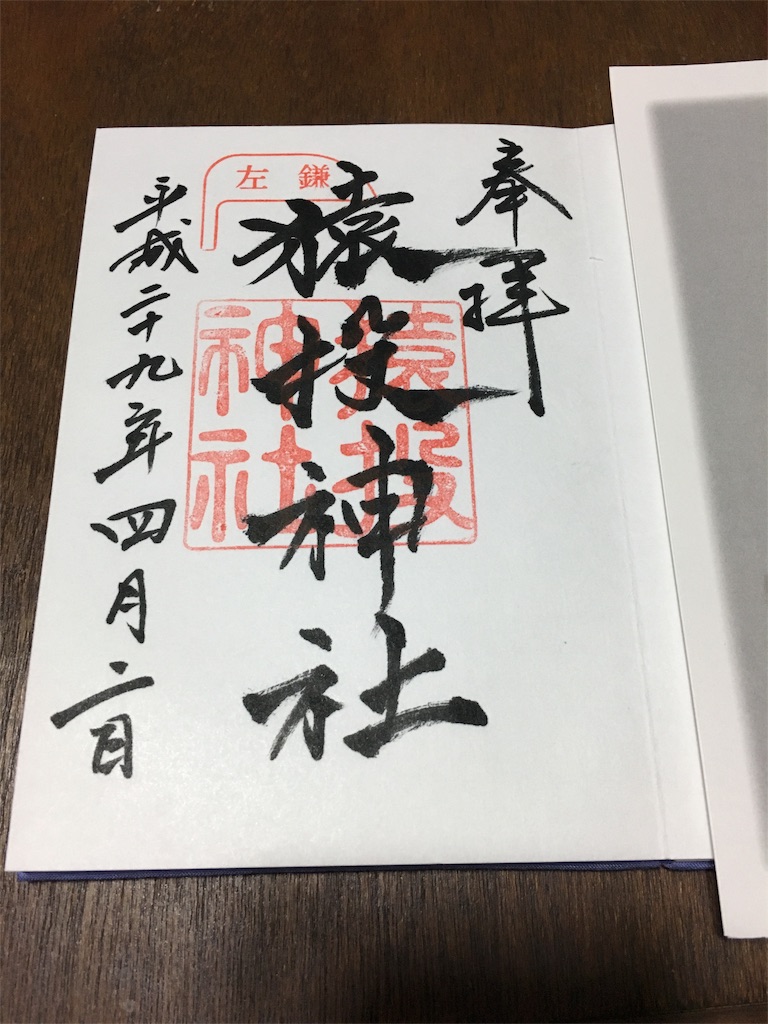 奉拝
左鎌
猿投神社
猿投
神社
平成二十九年四月二日